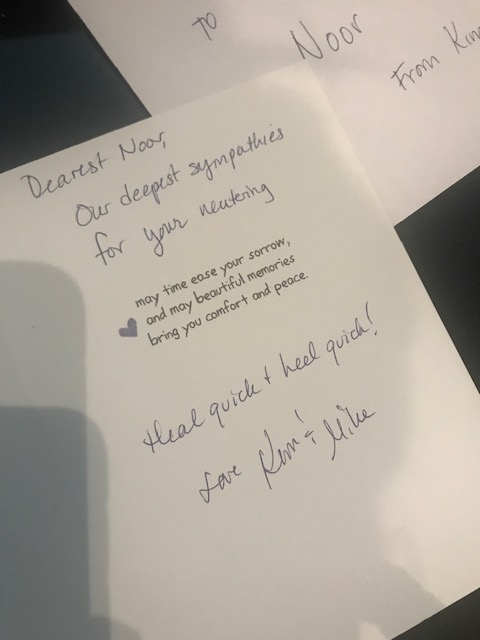 To
Noor
From Kim
Dearest Noor,
Our deepest sympathies
for your neutering
may time ease your sorrow,
and may beautiful memories
bring you comfort and peace.
Heal quick + heel quick!
Love Kim & Mike